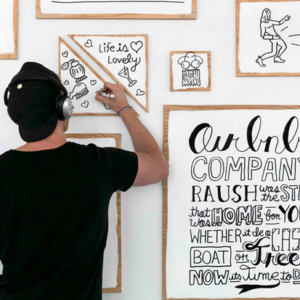 Life is
Lovely
airbnb
COMPANY
RAUSH was the ST
that was HOME for YO
WHETHER it be a CAS
BOAT or Tree
NOW its Time to D